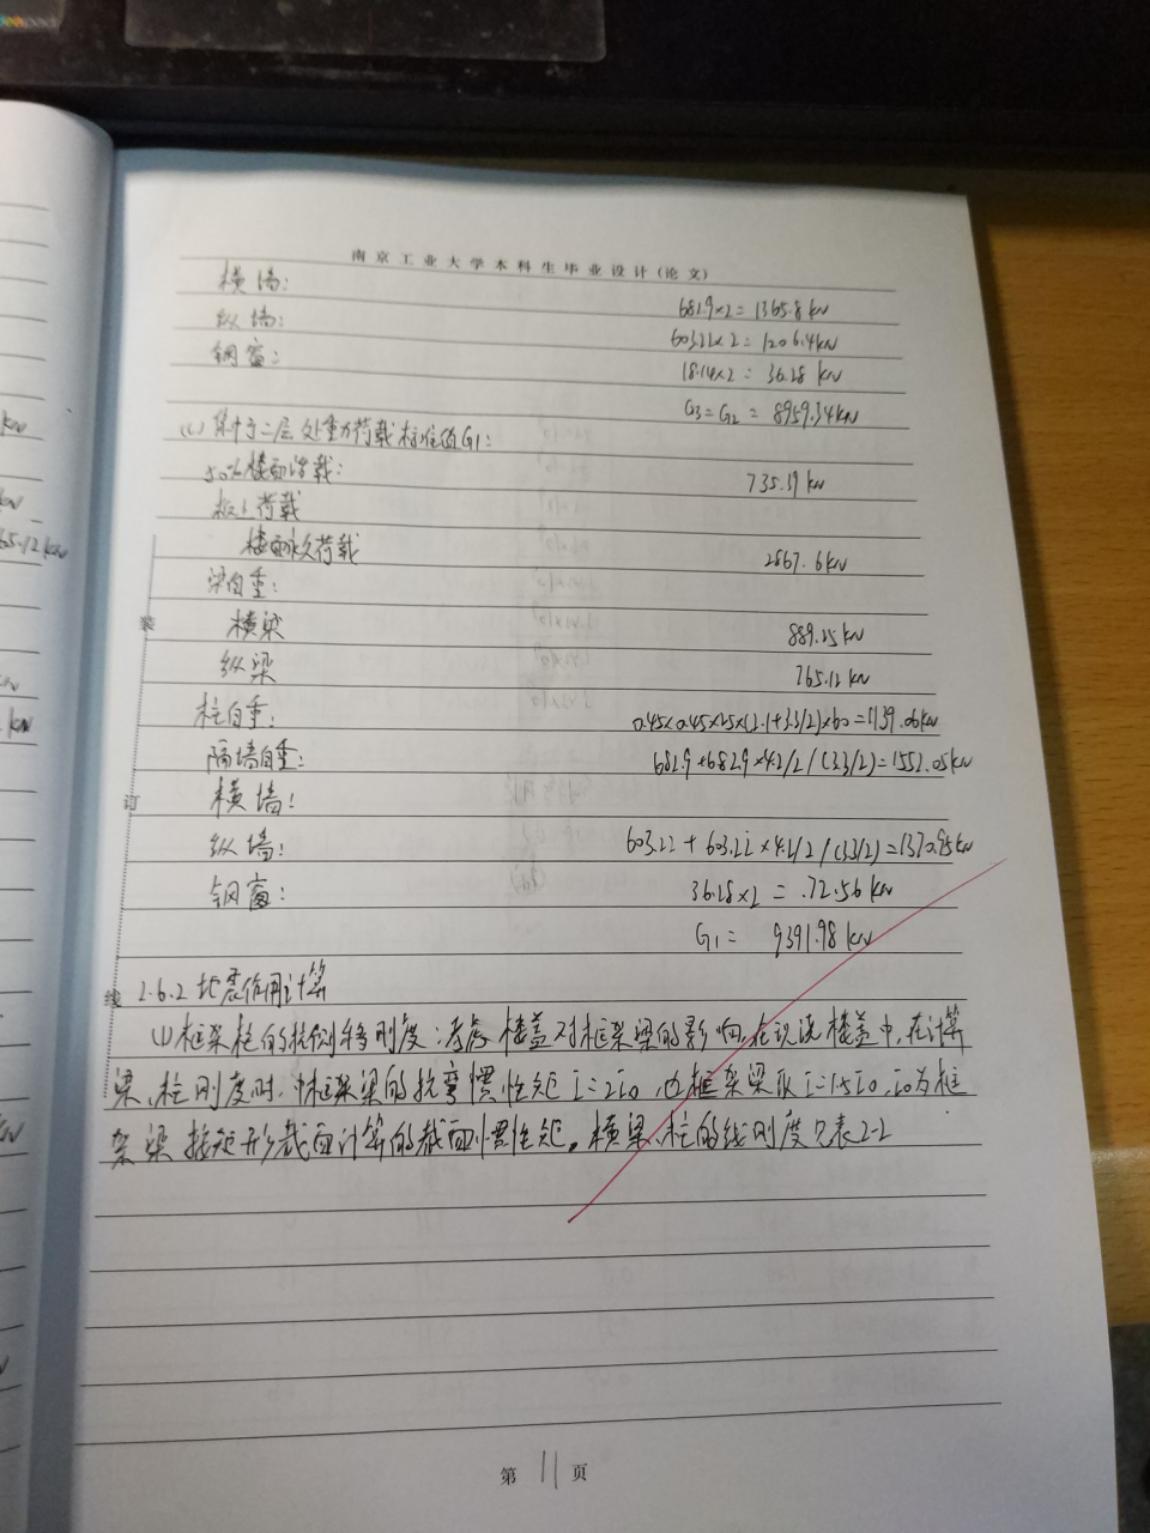 南京工业大学本科生毕业设计(论文)
横墙: 682.9×2=1365.8kN
纵墙: 603.22×2=1206.4kN
钢窗: 18.14×2=36.28kN
G3=G2=8959.34kN
集中于二层处重力荷载标准值G1:
50%楼面活载: 735.39kN
板上荷载
楼面永久荷载 2867.6kN
梁自重:
横梁 889.25kN
纵梁 765.12kN
柱自重: 0.45×0.45×25×(2.1+3.3/2)×60=1139.06kN
隔墙自重: 682.9+682.9×4.2/2/(3.3/2)=1552.05kN
横墙:
纵墙: 603.22+603.22×4.2/2/(3.3/2)=1370.95kN
钢窗: 36.28×2=72.56kN
G1= 9391.98kN
2.6.2 地震作用计算
(1)框架柱的抗侧移刚度:考虑楼盖对框架梁的影响,在现浇楼盖中,在计算
梁、柱刚度时,中框架梁的抗弯惯性矩I=2I0,边框架梁取I=1.5I0,I0为框
架梁按矩形截面计算的截面惯性矩。横梁、柱的线刚度见表2-2
装
订
线
第 11 页
kN
65.12kN
kN